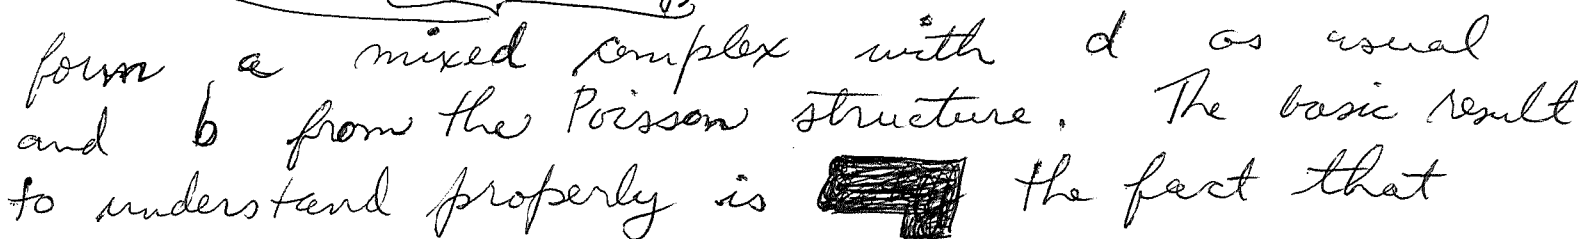 form a mixed complex with d as usual
and b from the Poisson structure. The basic result
to understand properly is the fact that